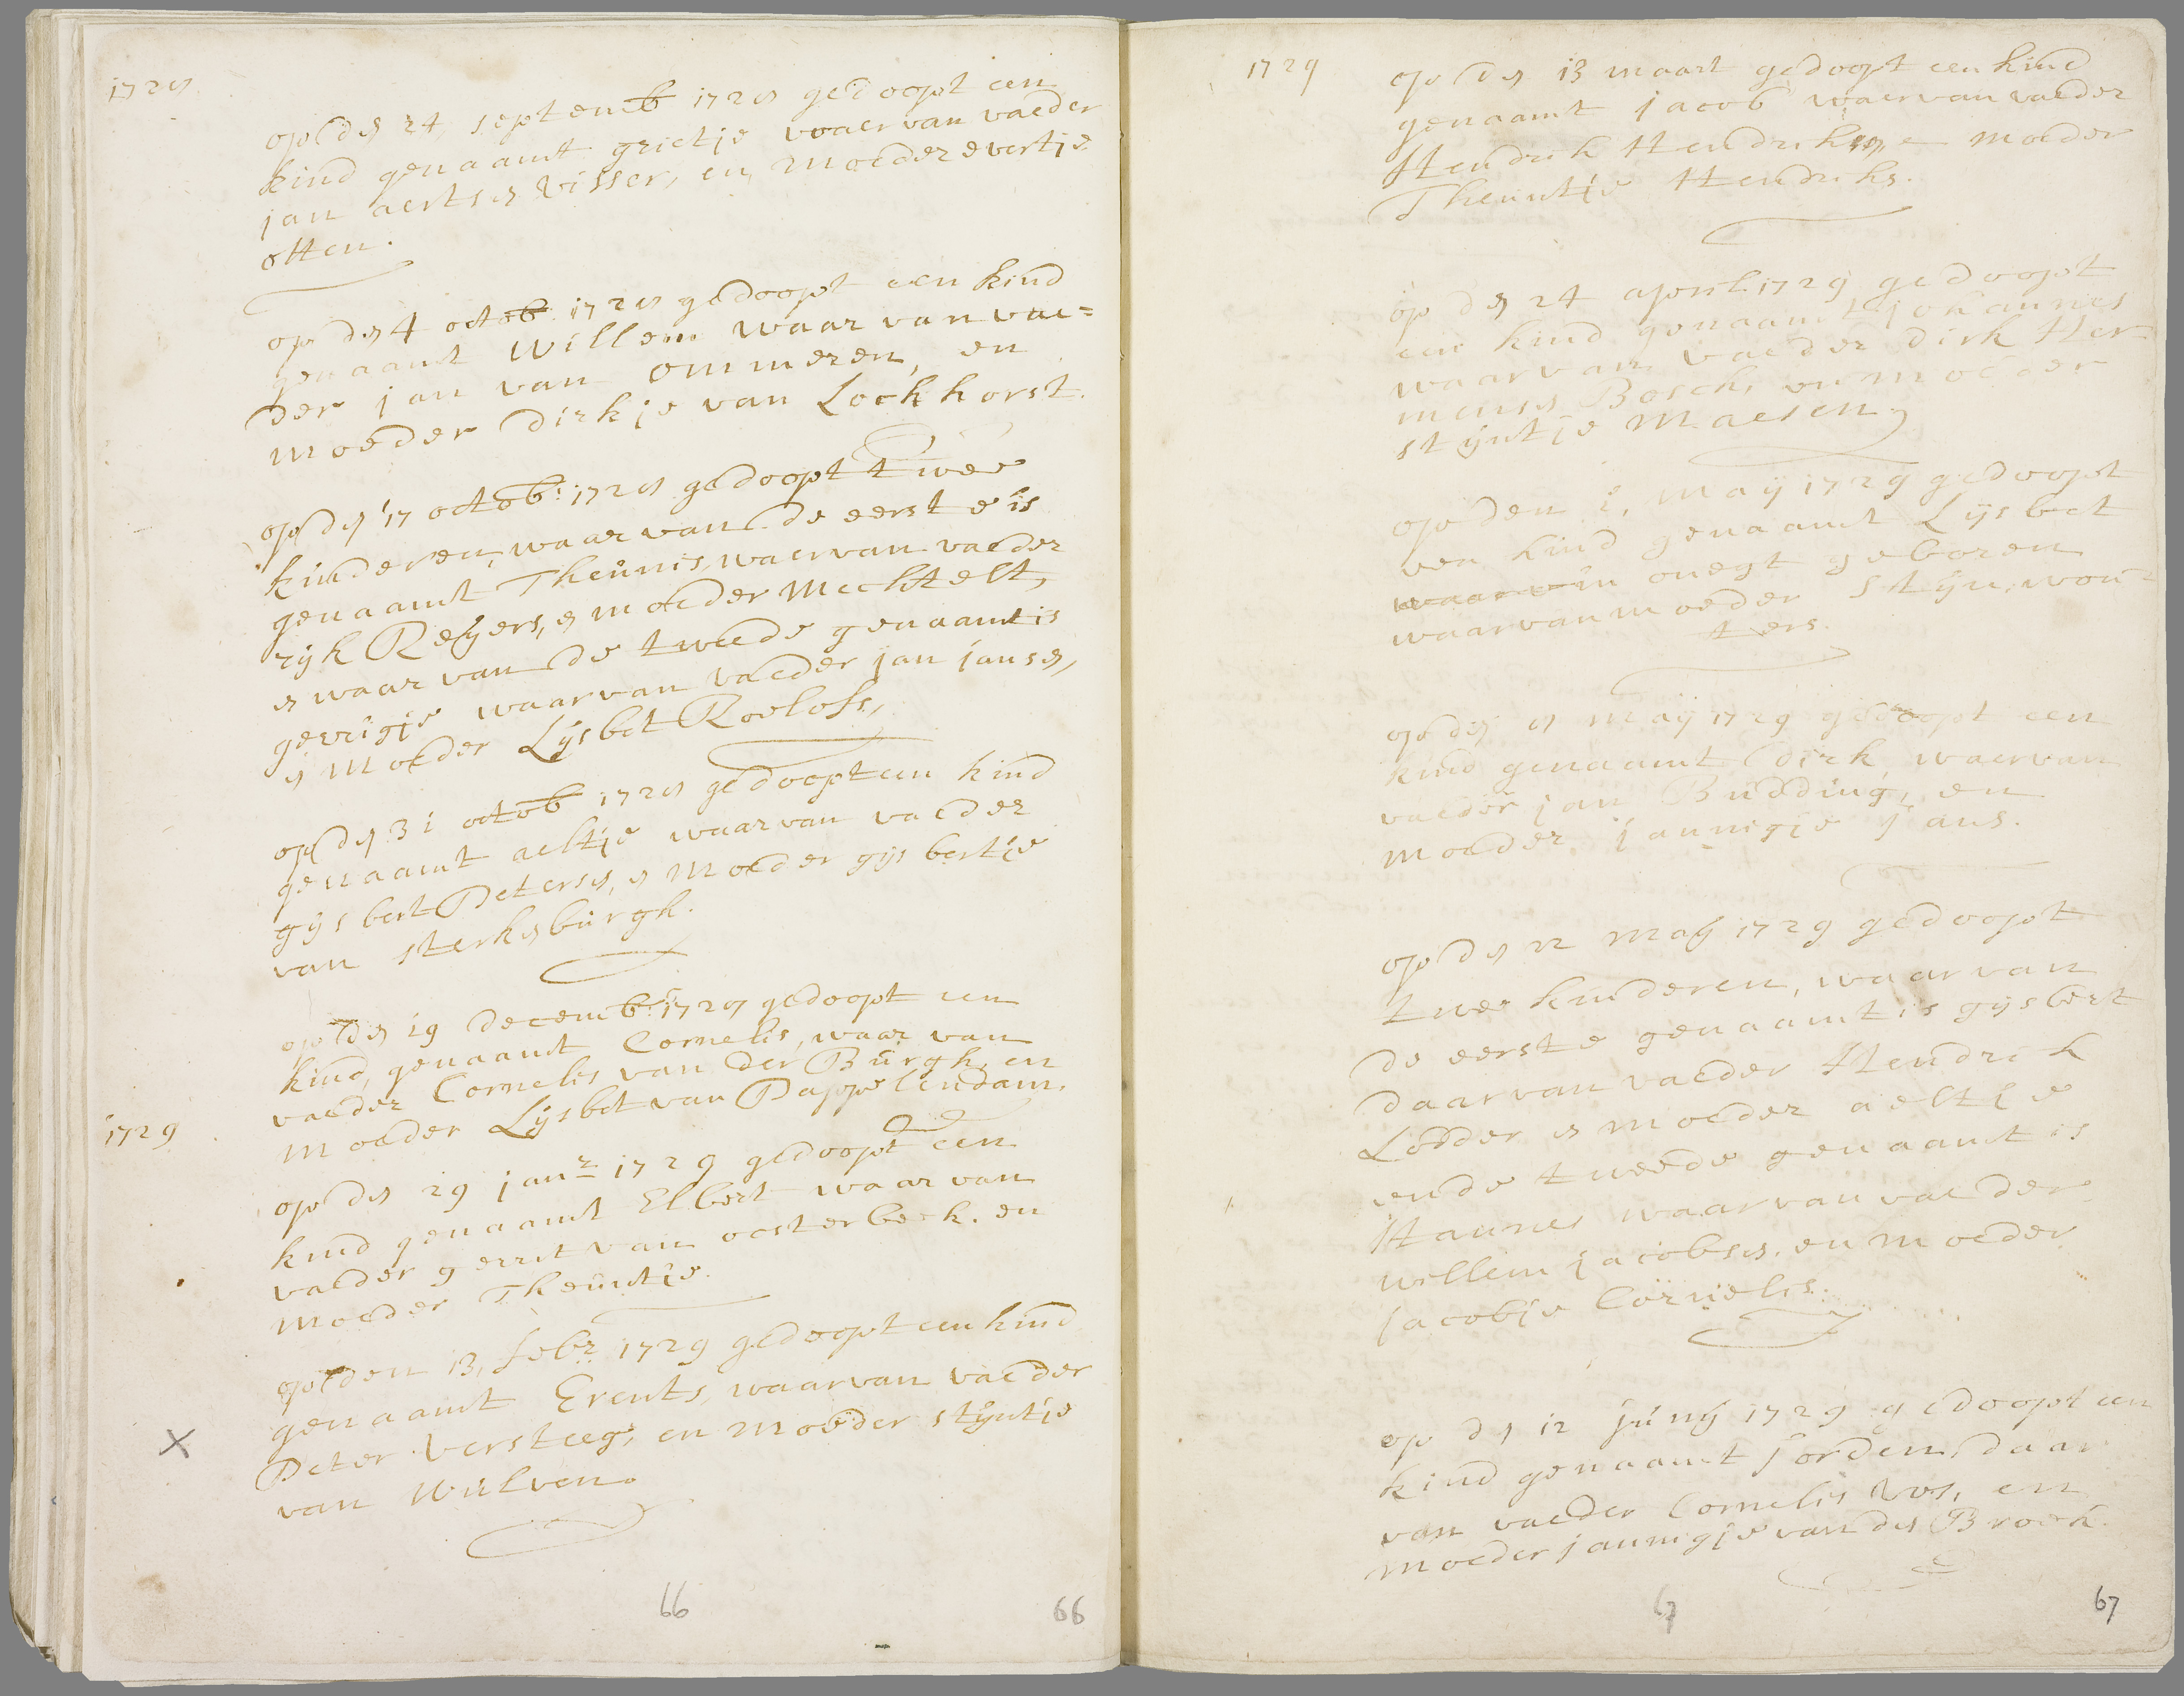 1728
op den 24 septemb 1728 gedoopt een
kind genaamt grietje waervan vaeder
jan aertsen Visser, en moeder evertje
otten.
op den 4 octob 1728 gedoopt een kind
genaamt Willem waar van vae=
der jan van ommeren, en
moeder dirkje van Lockhorst.
op den 17 octob: 1728 gedoopt twee
kinderen, waar van de eerste is
genaamt Theunis, waervan vaeder
rijk Reijers, en moeder Mechtelt,
en waar van de tweede genaamt is
gerrigje waarvan vaeder jan jansen,
en Moeder Lijsbet Roelofs,
op den 31 octob 1728 gedoopt een kind
genaamt aeltje waarvan vaeder
gijsbert Petersen, en Moeder gijsbertje
van sterkenburgh.
op den 19 decemb: 1728 gedoopt een
kind, genaamt Cornelis, waar van
vaeder Cornelis van der Burgh, en
Moeder Lijsbet van Pappelendam.
1729
op den 29 janr 1729 gedoopt een
kind genaamt Elbert waar van
vaeder gerrit van oosterbeek. en
Moeder Theuntje.
op den 13, febr 1729 gedoopt een kind
genaamt Erents, waarvan vaeder
Peter Versteeg, en Moeder stijntje
van Wulven.
66
66
1729
op den 13 maart gedoopt een kind
genaamt jacob waervan vaeder
Hendrik Hendriksen en moeder
Theuntje Hendriks.
op den 24 april 1729 gedoopt
een kind genaamt johannes
waarvan vaeder dirk Her
mensen Bosch, en moeder
stijntje Maesen
op den 1, maij 1729 gedoopt
een kind genaamt Lijsbet
waarvan onegt geboren
waarvan moeder Stijn, wou
ters.
op den 8 maij 1729 gedoopt een
kind genaamt dirk waervan
vaeder jan Budding, en
moeder jannigje jans.
op den 22 maij 1729 gedoopt
twe kinderen, waarvan
de eerste genaamt is gijsbert
daarvan vaeder Hendrik
Lodder en moeder aeltje
ende tweede genaamt is
Hannes waarvan vaeder
willem jacobsen. en Moeder
jacobje Cornelis.
op den 12 junij 1729 gedoopt een
kind genaamt jorden, daar
van vaeder Cornelis Vos, en
moeder jannigje van den Broek.
67
67